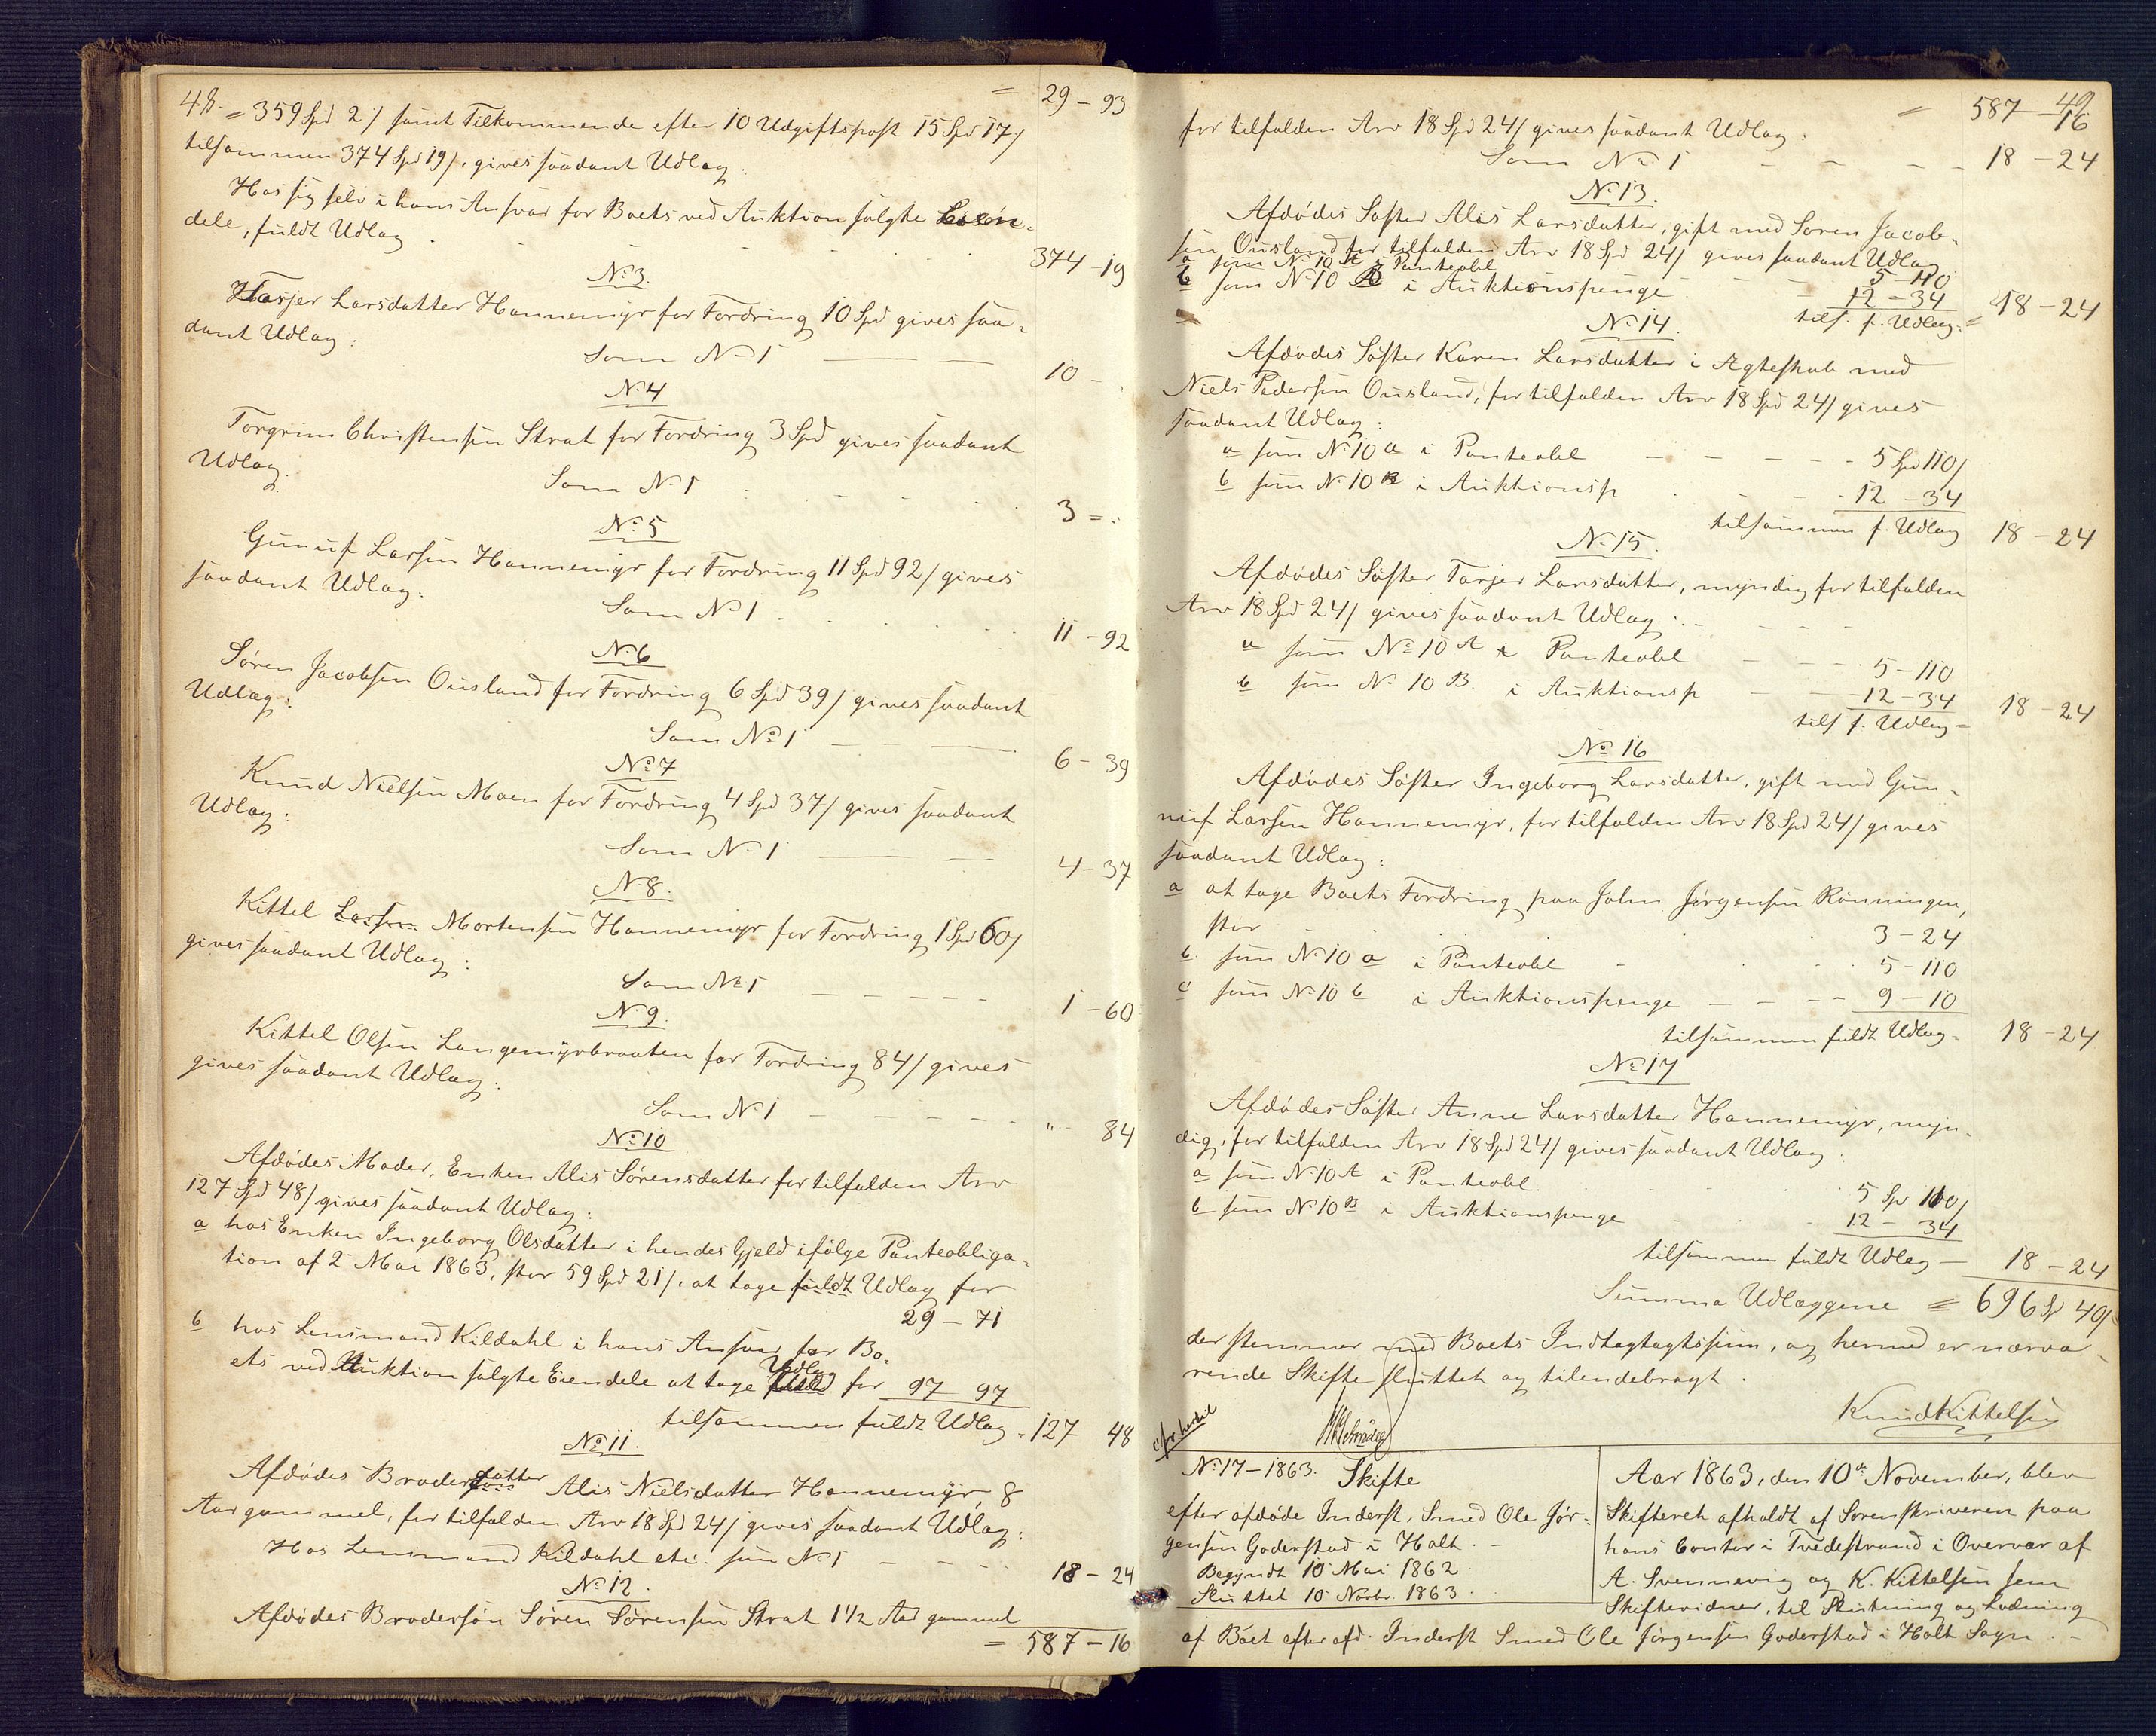 48.
= 29 - 93
= 359 Spd 2 / samt Tilkommende efter 10 Udgiftspost 15 Spd 17/
tilsammen 374 Spd 19/, gives saadant Udlæg:
Hos sig selv i hans Ansvar for Boets ved Auktion solgte Eien-
dele, fuldt Udlæg . . . . 374 - 19
No 3.
Tarjer Larsdatter Hannemyr for Fordring 10 Spd gives saa-
dant Udlæg:
Som No 1 — — 10 - .
No 4
Torgrim Christensen Strat for Fordring 3 Spd gives saadant
Udlæg.
Som No 1 . - - . 3 = .
No 5
Gunuf Larsen Hannemyr for Fordring 11 Spd 92/ gives
saadant Udlæg:
Som No 1 . . . . 11 - 92
No 6
Søren Jacobsen Ousland for Fordring 6 Spd 39/ gives saadant
Udlæg:
Som No 1 — — — 6 - 39
No 7
Knud Nielsen Moen for Fordring 4 Spd 37/ gives saadant
Udlæg:
Som No 1 — — 4 - 37
No 8.
Kittel Larsen Mortensen Hannemyr for Fordring 1 Spd 60/
gives saadant Udlæg:
Som No 1 - - - - - 1 - 60
No 9.
Kittel Olsen Langemyrbraaten for Fordring 84/ gives
gives saadant Udlæg:
Som No 1 - - - - . " - 84
No 10
Afdødes Moder, Enken Alis Sørensdatter for tilfalden Arv
127 Spd 48/ gives saadant Udlæg:
a hos Enken Ingeborg Olsdatter i hendes Gjeld ifølge Panteobliga-
tion af 2 Mai 1863, stor 59 Spd 21/. at tage fuldt Udlæg for
29 - 71
b hos Lensmand Kildahl i hans Ansvar for Bo-
ets ved Auktion solgte Eiendele at tage Udlæg for 97 97
tilsammen fuldt Udlæg = 127 48
No 11.
Afdødes Broderdatter Alis Nielsdatter Hannemyr, 8
Aar gammel, for tilfalden Arv 18 Spd 24/ gives saadant Udlæg:
Hos Lensmand Kildahl etc. som No 1 - - - . 18 - 24
No 12.
Afdødes Brodersøn Søren Sørensen Strat 1 1/2 Aar gammel
= 587 - 16
49
= 587 - 16
for tilfalden Arv 18 Spd 24/ gives saadant Udlæg:
Som No 1 - - - - 18 - 24
No 13.
Afdødes Søster Alis Larsdatter, gift med Søren Jacob-
sen Ousland for tilfalden Arv 18 Spd 24/ gives saadant Udlæg
a som No 10 A i Panteobl - - 5 - 110
b som No 10 B i Auktionspenge - 12 - 34
tils. f. Udlæg = 18 - 24
No 14.
Afdødes Søster Karen Larsdatter i Ægteskab med
Niels Pedersen Ousland, for tilfalden Arv 18 Spd 24/ gives
saadant Udlæg:
a som No 10 a i Panteobl — - - - - - 5 Spd 110/
b som No 10 B i Auktionsp . - - - 12 - 34
tilsammen f. Udlæg 18 - 24
No 15.
Afdødes Søster Tarjer Larsdatter, myndig for tilfalden
Arv 18 Spd 24/ gives saadant Udlæg:
a som No 10 A i Panteobl - - - . 5 - 110
b som No 10 B. i Auktionsp - - - 12 - 34
tils f. Udlæg = 18 - 24
No 16
Afdødes Søster Ingeborg Larsdatter, gift med Gun-
nuf Larsen Hannemyr, for tilfalden Arv 18 Spd 24/ gives
saadant Udlæg:
a at tage Boets Fordring paa John Jørgensen Rønningen,
stor . . . . 3 - 24
b. som No 10 a i Panteobl - . . . 5 - 110
c som No 10 b i Auktionspenge - - - - 9 - 10
tilsammen fuldt Udlæg = 18 - 24
No 17
Afdødes Søster Anne Larsdatter Hannemyr, myn-
dig, for tilfalden Arv 18 Spd 24/ gives saadant Udlæg:
a som No 10 A i Panteobl. . . . 5 Spd 110/
b som No 10 B i Auktionspenge - - . 12 - 34
tilsammen fuldt Udlæg — 18 - 24
Summa Udlæggene = 696 Sp 40/
der stemmer med Boets Indtægtagtssum, og hermed er nærvæ-
rende Skifte sluttet og tilendebragt.
Knud Kittelsen
No 17 - 1863. Skifte
efter afdøde Inderst, Smed Ole Jør-
gensen Goderstad i Holt. -
Begyndt 10 Mai 1862
Sluttet 10 Novbr. 1863.
Aar 1863, den 10de November, blev
Skifteret afholdt af Sorenskriveren paa
hans Contor i Tvedestrand i Overvær af
A. Svennevig og K. Kittelsen som
Skiftevidner, til Slutning og Lodning
af Boet efter afd. Inderst Smed Ole Jørgensen Goderstad i Holt Sogn. -